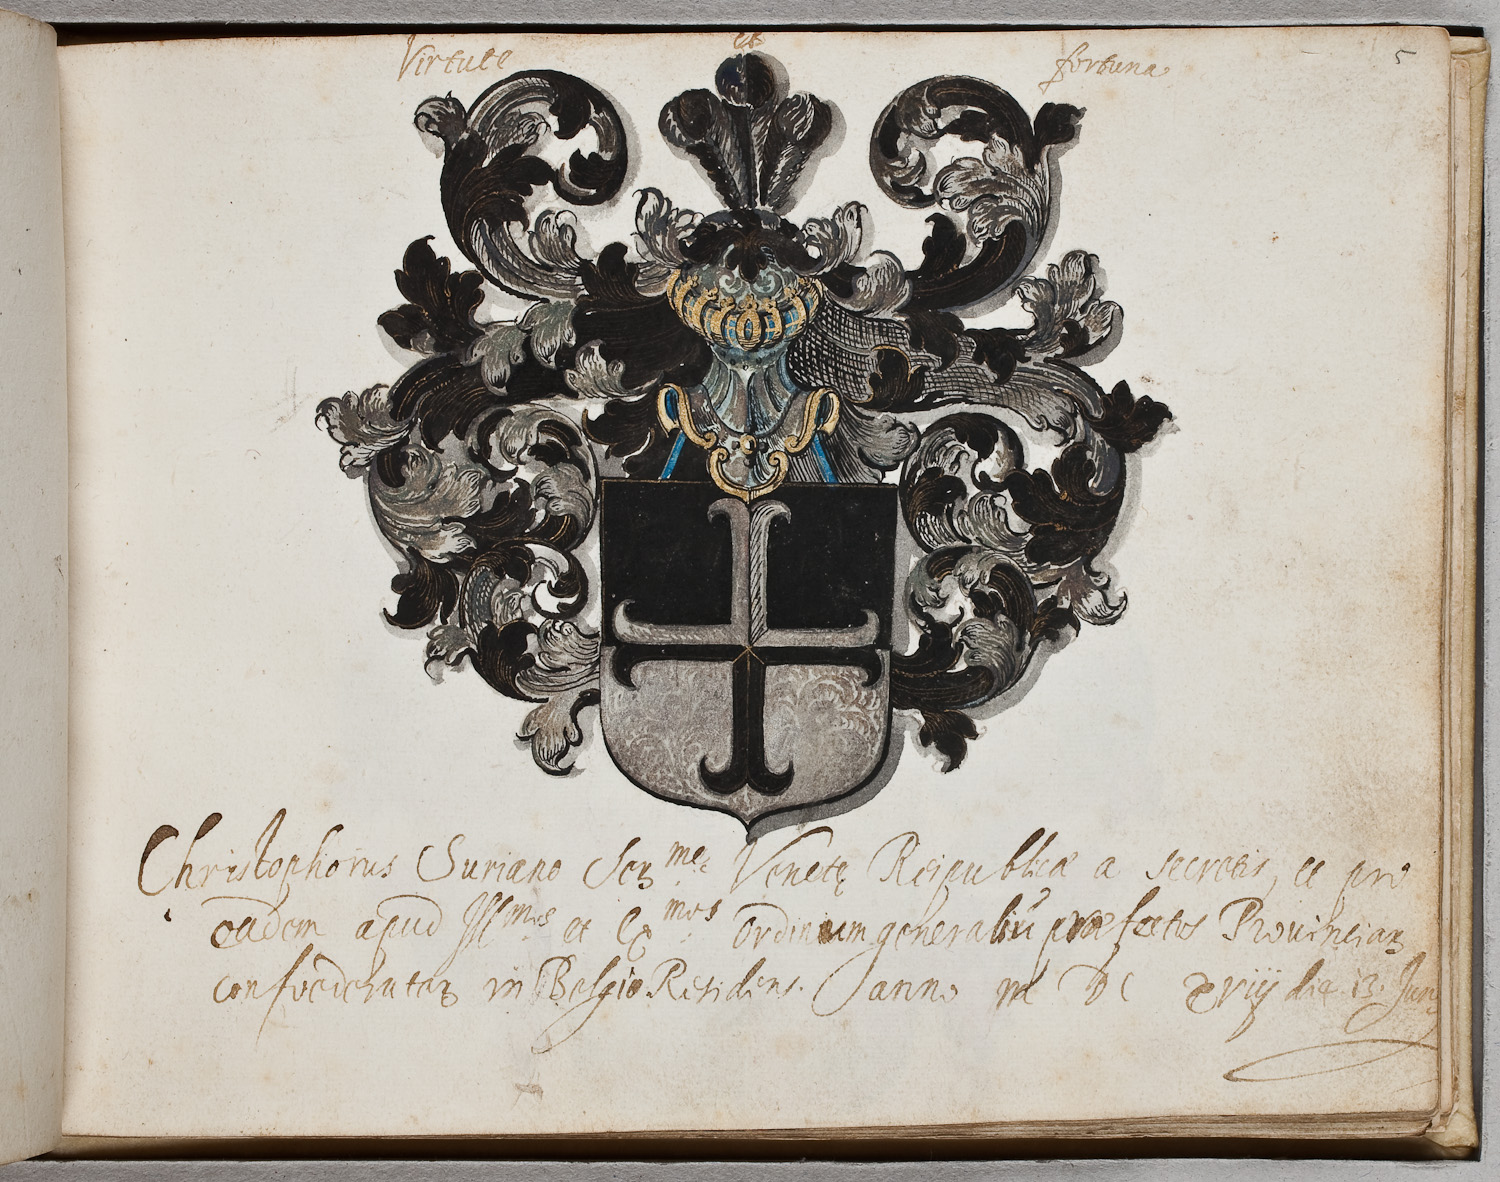 Virtute et fortuna
5
Christophorus Suriano Ser.me Venetę Reipublicæ a secretis, et pro
eadem apud Ill.mos et Ex.mos Ordinum generaliũ præfectos Prouinciarꝫ
confoederatarꝫ in Belgio Residens. anno M DC xviij die 13. Junij